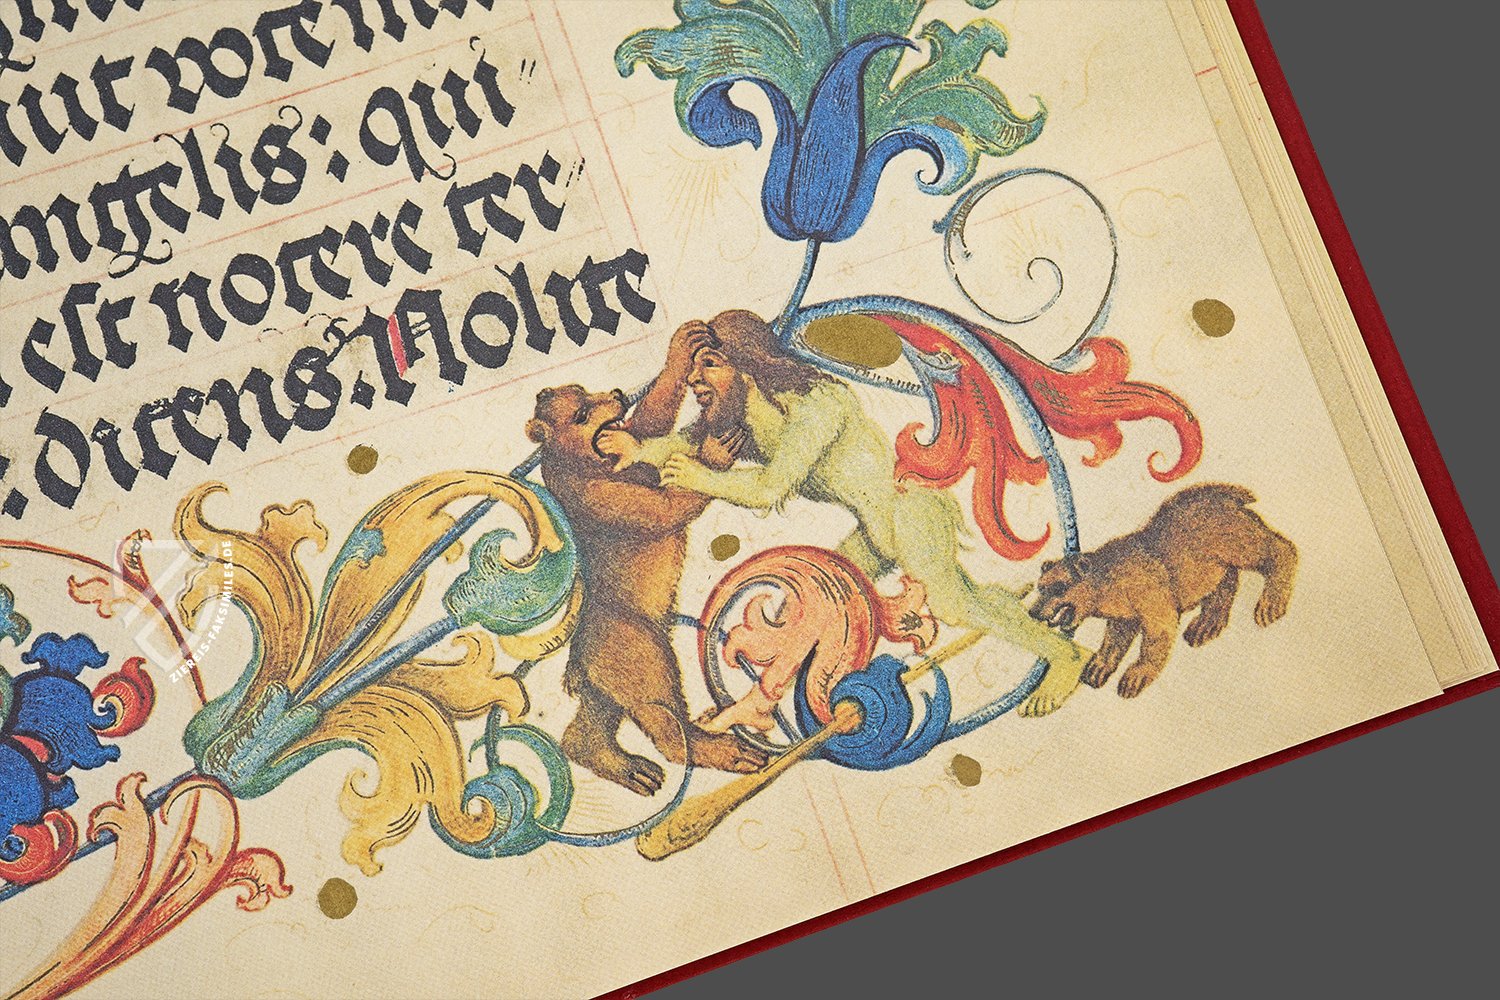 uit voce ma
angelis: qui
est nocere ter
: dicens. Nolite
ZIEREIS-FAKSIMILES.DE